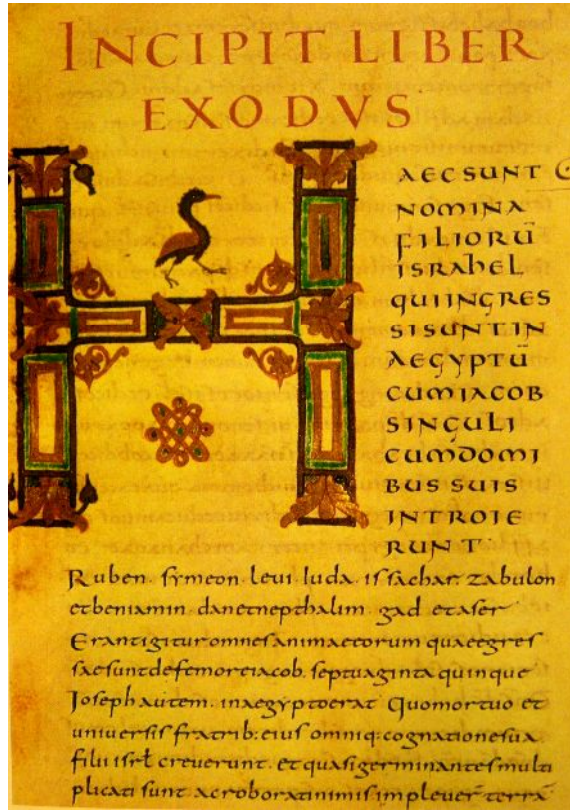 INCIPIT LIBER
EXODVS
HAEC SUNT
NOMINA
FILIORŪ
ISRAHEL
QUI INGRES
SI SUNT IN
AEGYPTŪ
CUM IACOB
SINGULI
CUM DOMI
BUS SUIS
INTROIE
RUNT·
Ruben· symeon· levi· Iuda· issachar· zabulon
et beniamin· dan et nepthalim· gad et aser
Erant igitur omnes animae eorum quae egres
sae sunt de femore iacob· septuaginta quinque
Ioseph autem· in aegypto erat· Quo mortuo et
universis fratrib: eius omniq: cognatione sua·
filii isrł creverunt· et quasi germinantes multi
plicati sunt ac roborati nimis impleuer terrā